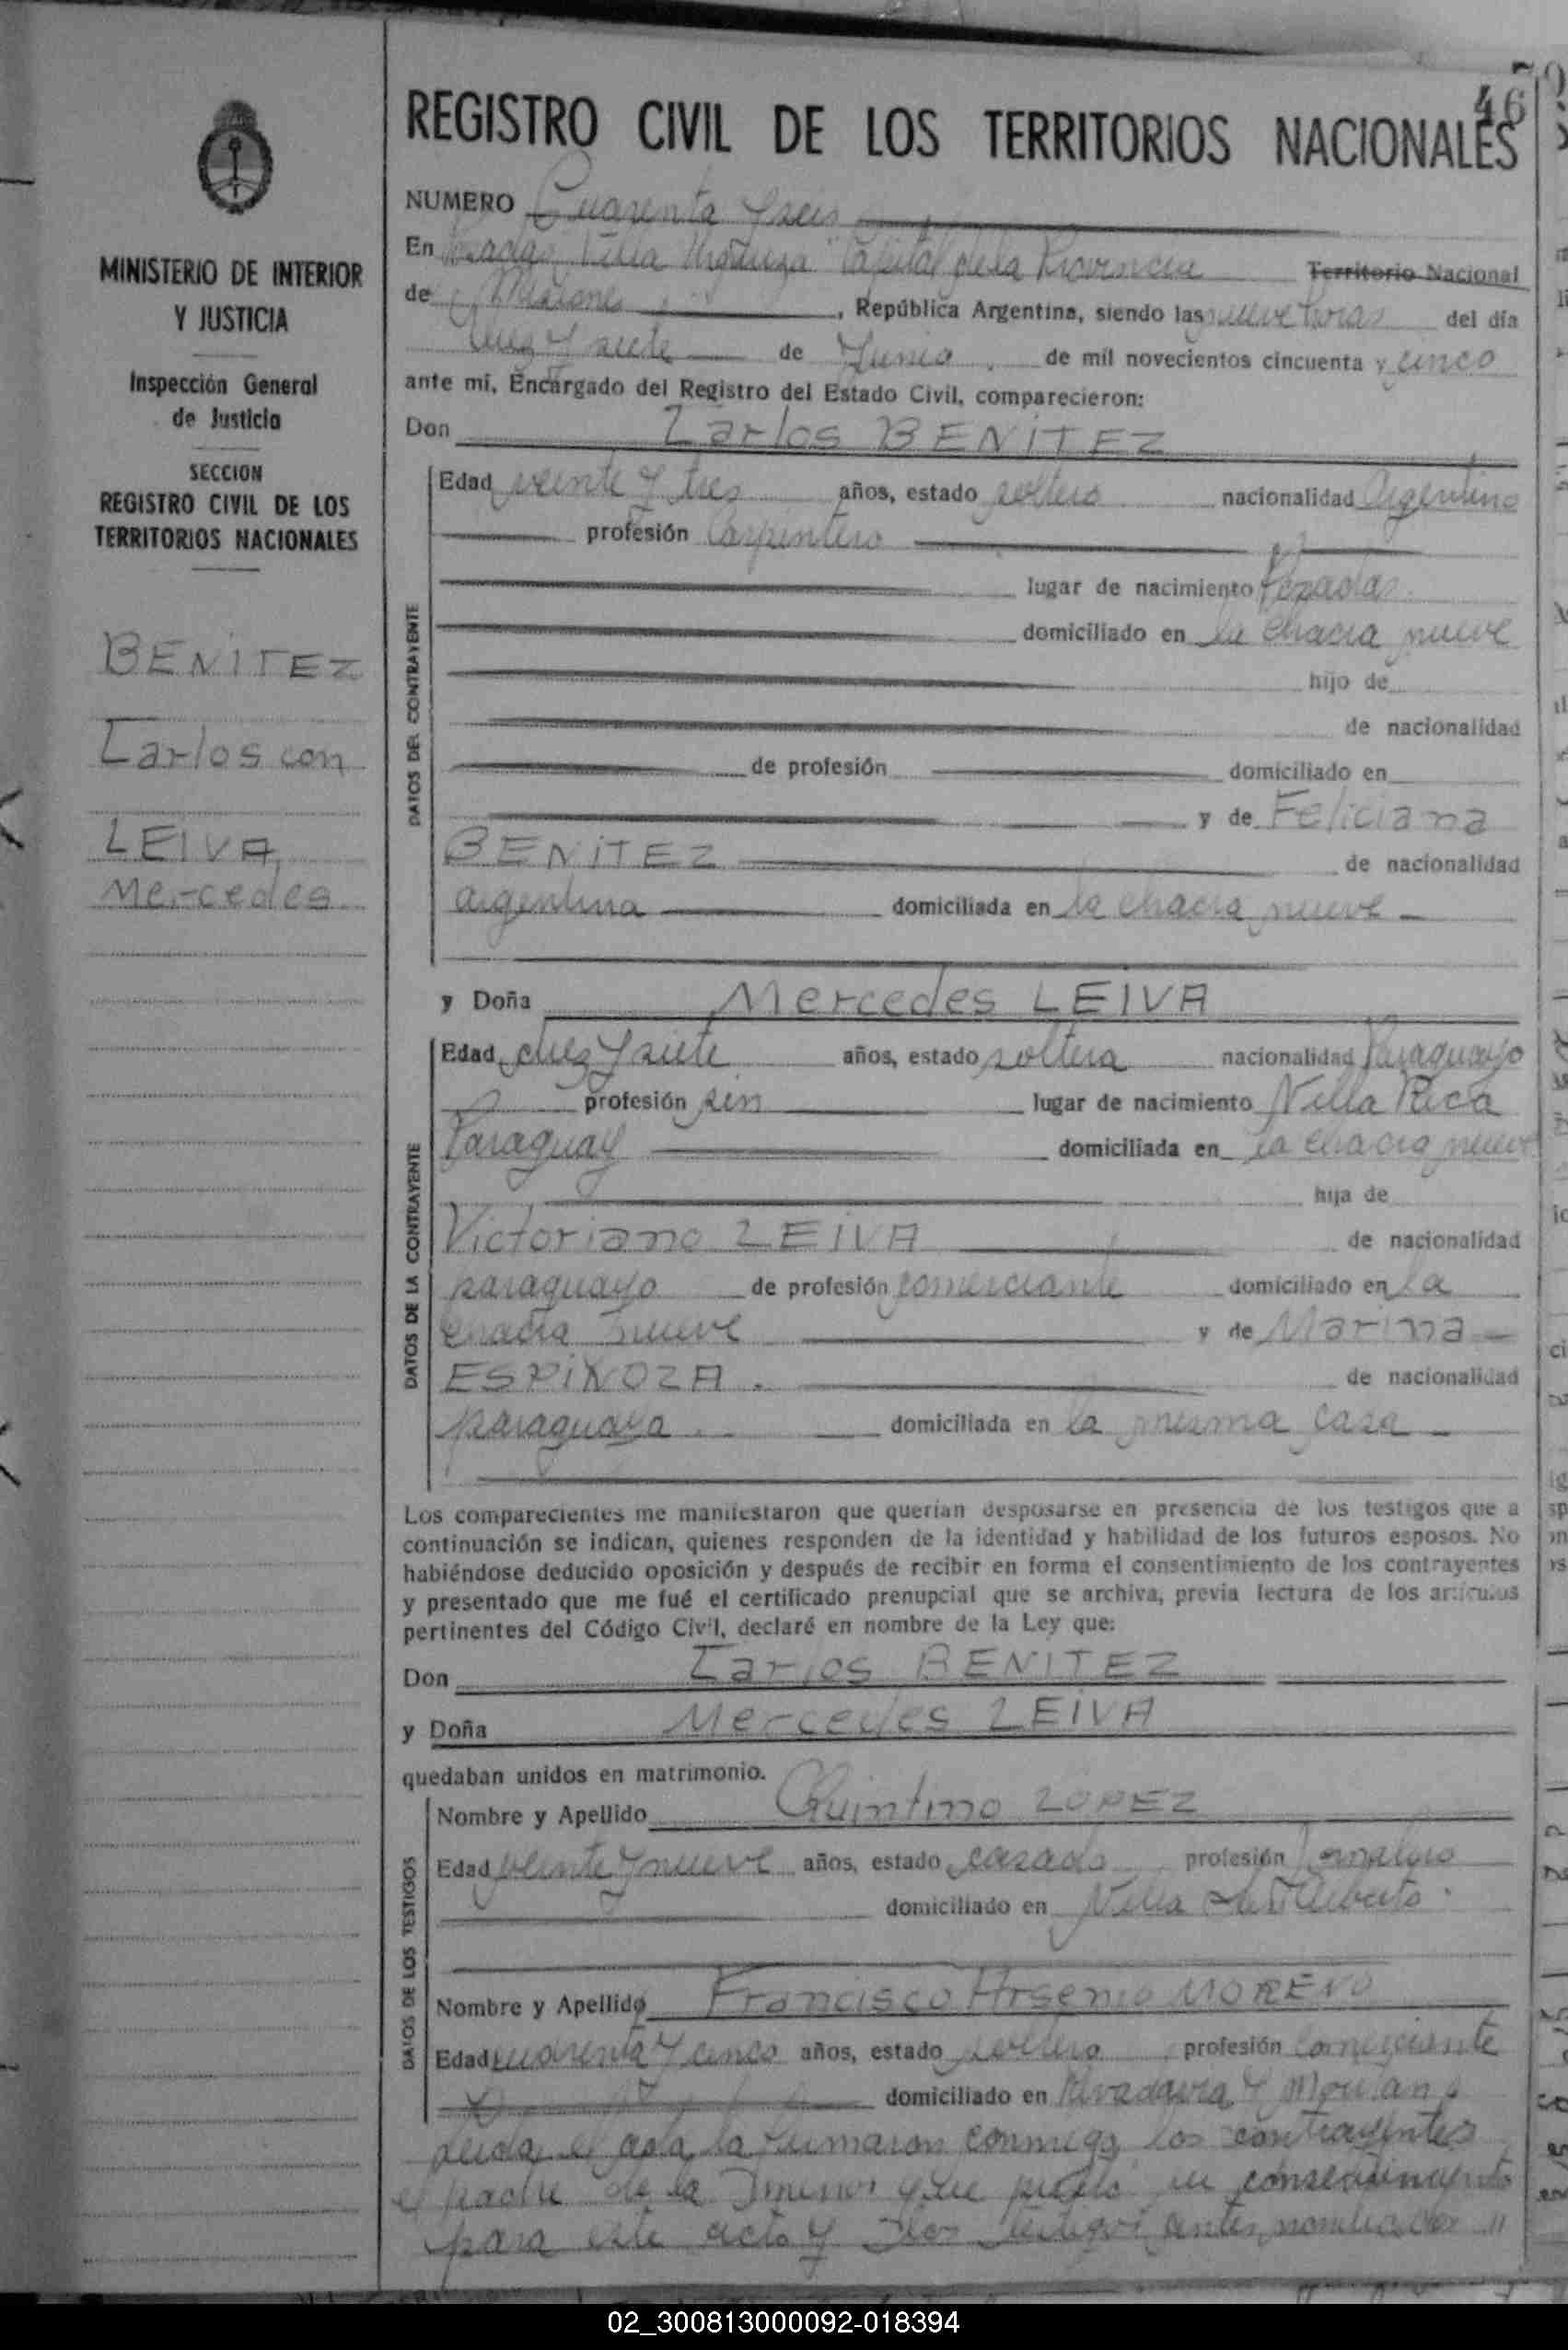 46
REGISTRO CIVIL DE LOS TERRITORIOS NACIONALES
MINISTERIO DE INTERIOR
Y JUSTICIA
Inspección General
de Justicia
SECCION
REGISTRO CIVIL DE LOS
TERRITORIOS NACIONALES
BENITEZ
Carlos con
LEIVA,
Mercedes
NUMERO Cuarenta y seis
En Posadas Villa Capital de la Provincia Territorio Nacional
de Misiones, República Argentina, siendo las nueve horas del día
diez y siete de Junio de mil novecientos cincuenta y cinco
ante mí, Encargado del Registro del Estado Civil, comparecieron:
Don Carlos BENITEZ
DATOS DEL CONTRAYENTE
Edad veinte y tres años, estado soltero nacionalidad Argentino
profesión Carpintero
lugar de nacimiento Posadas
domiciliado en la chacra nueve
hijo de
de nacionalidad
de profesión domiciliado en
y de Feliciana
BENITEZ de nacionalidad
argentina domiciliada en la chacra nueve
y Doña Mercedes LEIVA
DATOS DE LA CONTRAYENTE
Edad diez y siete años, estado soltera nacionalidad Paraguaya
profesión sin lugar de nacimiento Villa Rica
Paraguay domiciliada en la chacra nueve
hija de
Victoriano LEIVA de nacionalidad
paraguayo de profesión comerciante domiciliado en la
chacra nueve y de Marina
ESPINOZA. de nacionalidad
paraguaya domiciliada en la misma casa
Los comparecientes me manifestaron que querían desposarse en presencia de los testigos que a
continuación se indican, quienes responden de la identidad y habilidad de los futuros esposos. No
habiéndose deducido oposición y después de recibir en forma el consentimiento de los contrayentes
y presentado que me fué el certificado prenupcial que se archiva, previa lectura de los artículos
pertinentes del Código Civil, declaré en nombre de la Ley que:
Don Carlos BENITEZ
y Doña Mercedes LEIVA
quedaban unidos en matrimonio.
DATOS DE LOS TESTIGOS
Nombre y Apellido Quintino LOPEZ
Edad veinte y nueve años, estado casado profesión Jornalero
domiciliado en Villa
Nombre y Apellido Francisco Arsenio MORENO
Edad cuarenta y cinco años, estado soltero profesión Comerciante
domiciliado en Rivadavia y
Leida el acta la firmaron conmigo los contrayentes
el padre de la menor que prestó su consentimiento
para este acto y los testigos antes nombrados
02_300813000092-018394